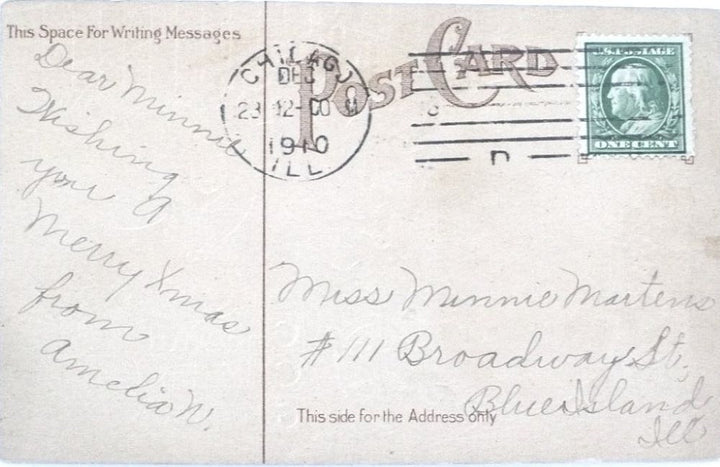 This Space For Writing Messages
Dear Minnie
Wishing
you A
Merry Xmas
from
Amelia W.
POST CARD
CHICAGO
DEC
23 12-00 M
1910
ILL.
D
U.S. POSTAGE
ONE CENT
Miss Minnie Martens
#111 Broadway St,
Blue Island
Ill
This side for the Address only